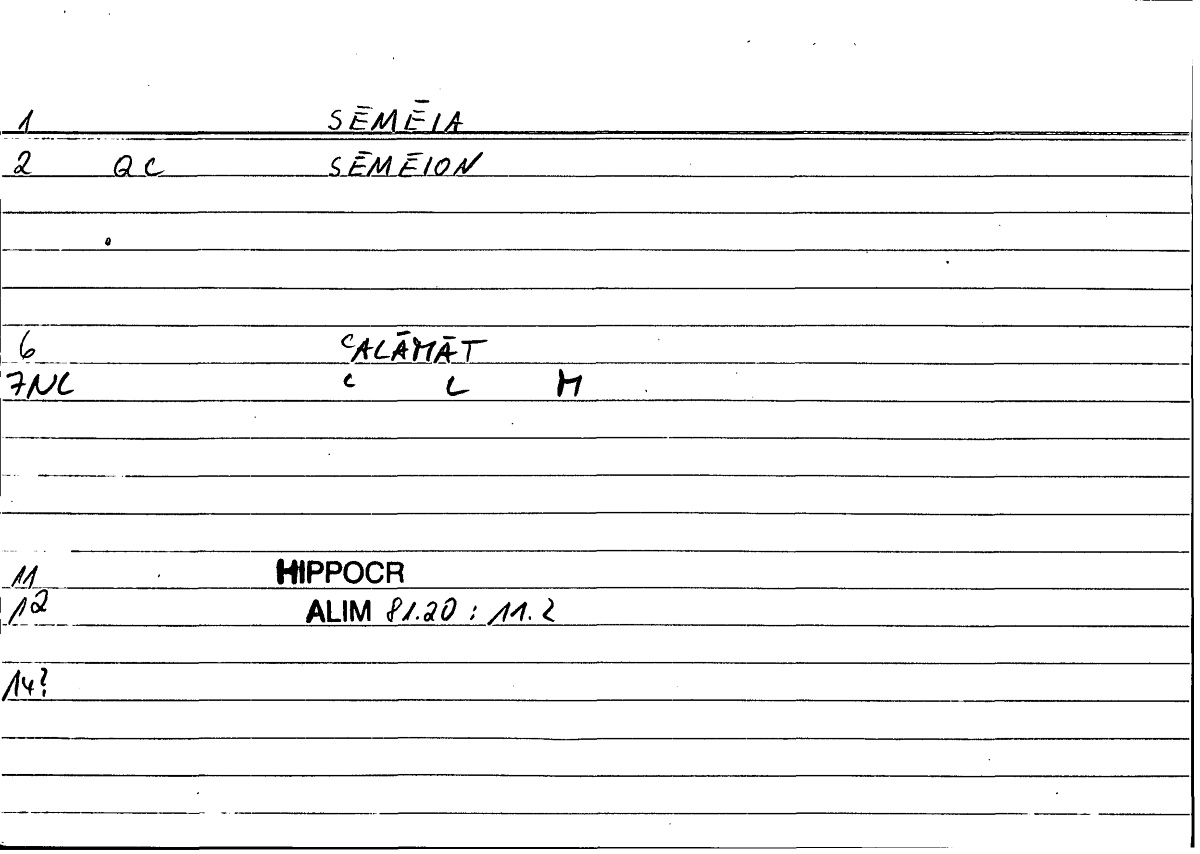 1 SĒMĒIA
2 QC SĒMĒION
6 ʿALĀMĀT
7NC ʿ L M
11 HIPPOCR
12 ALIM 81.20 : 11.2
14?